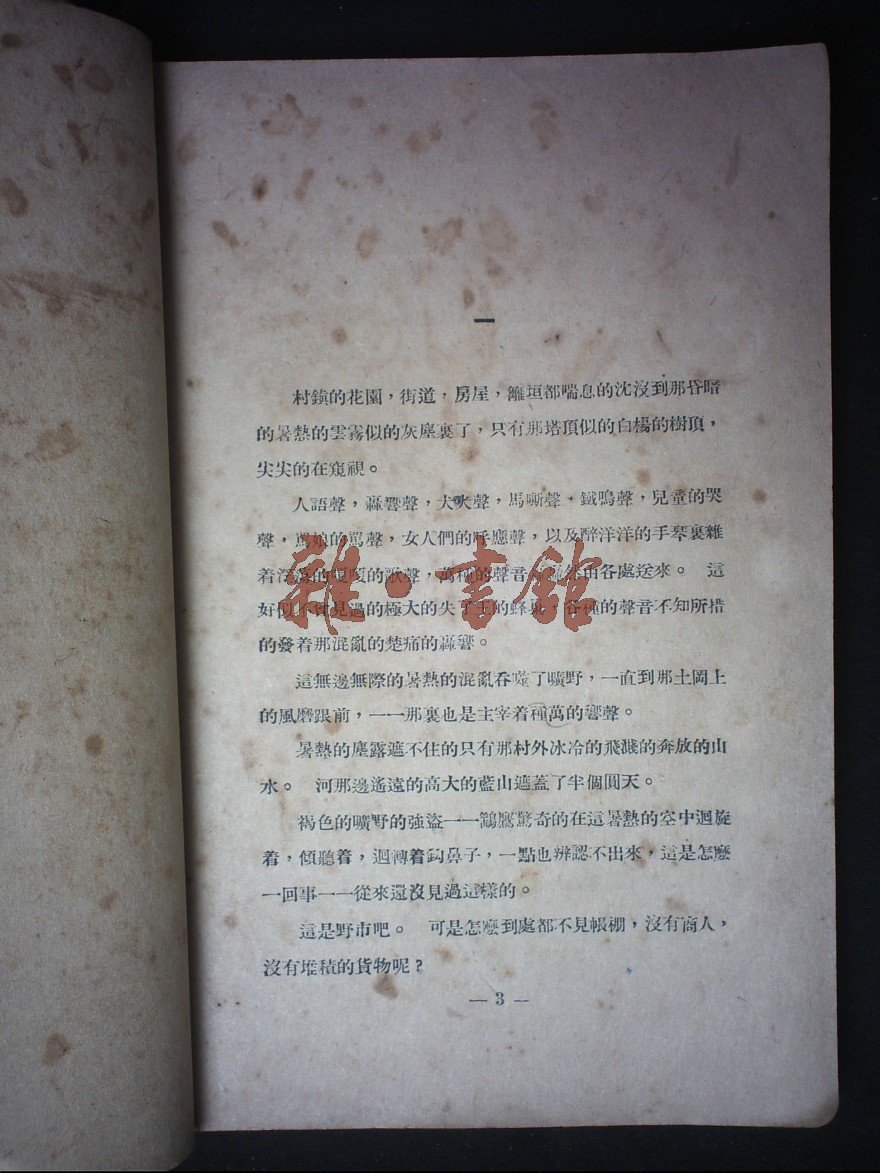 一
村鎮的花園，街道，房屋，籬垣都喘息的沈沒到那昏暗
的暑熱的雲霧似的灰塵裏了，只有那塔頂似的白楊的樹頂，
尖尖的在窺視。
人語聲，轟響聲，犬吠聲，馬嘶聲，鐵鳴聲，兒童的哭
聲，罵娘的罵聲，女人們的呼應聲，以及醉洋洋的手琴裏雜
着的歌聲，萬種的聲音由各處送來。　這
好似不曾見過的極大的失了王的蜂，各種的聲音不知所措
的發着那混亂的楚痛的轟響。
這無邊無際的暑熱的混亂吞噬了曠野，一直到那土岡上
的風磨跟前，——那裏也是主宰着種萬的響聲。
暑熱的塵露遮不住的只有那村外冰冷的飛濺的奔放的山
水。　河那邊遙遠的高大的藍山遮蓋了半個圓天。
褐色的曠野的強盜——鷂鷹驚奇的在這暑熱的空中迴旋
着，傾聽着，迴轉着鈎鼻子，一點也辨認不出來，這是怎麼
一回事——從來還沒見過這樣的。
這是野市吧。　可是怎麼到處都不見帳棚，沒有商人，
沒有堆積的貨物呢？
— 3 —
雜·書館